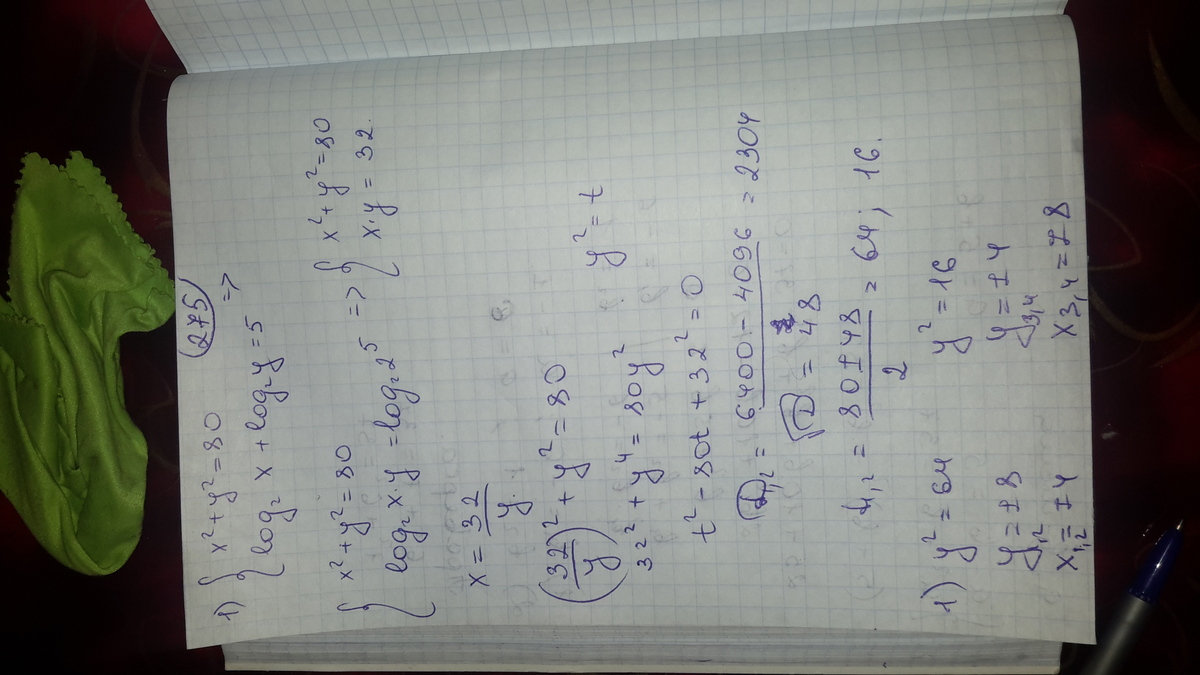 275
1) { x² + y² = 80
log₂ x + log₂ y = 5 =>
{ x² + y² = 80
log₂ x·y = log₂ 2⁵ => { x² + y² = 80
x·y = 32.
x = 32/y.
(32/y)² + y² = 80
32² + y⁴ = 80y² y² = t
t² - 80t + 32² = 0
D₁,₂ = 6400 - 4096 = 2304
√D = 48
t₁,₂ = (80 ± 48)/2 = 64; 16.
1) y² = 64 y² = 16
y₁,₂ = ±8 y₃,₄ = ±4
x₁,₂ = ±4 x₃,₄ = ±8